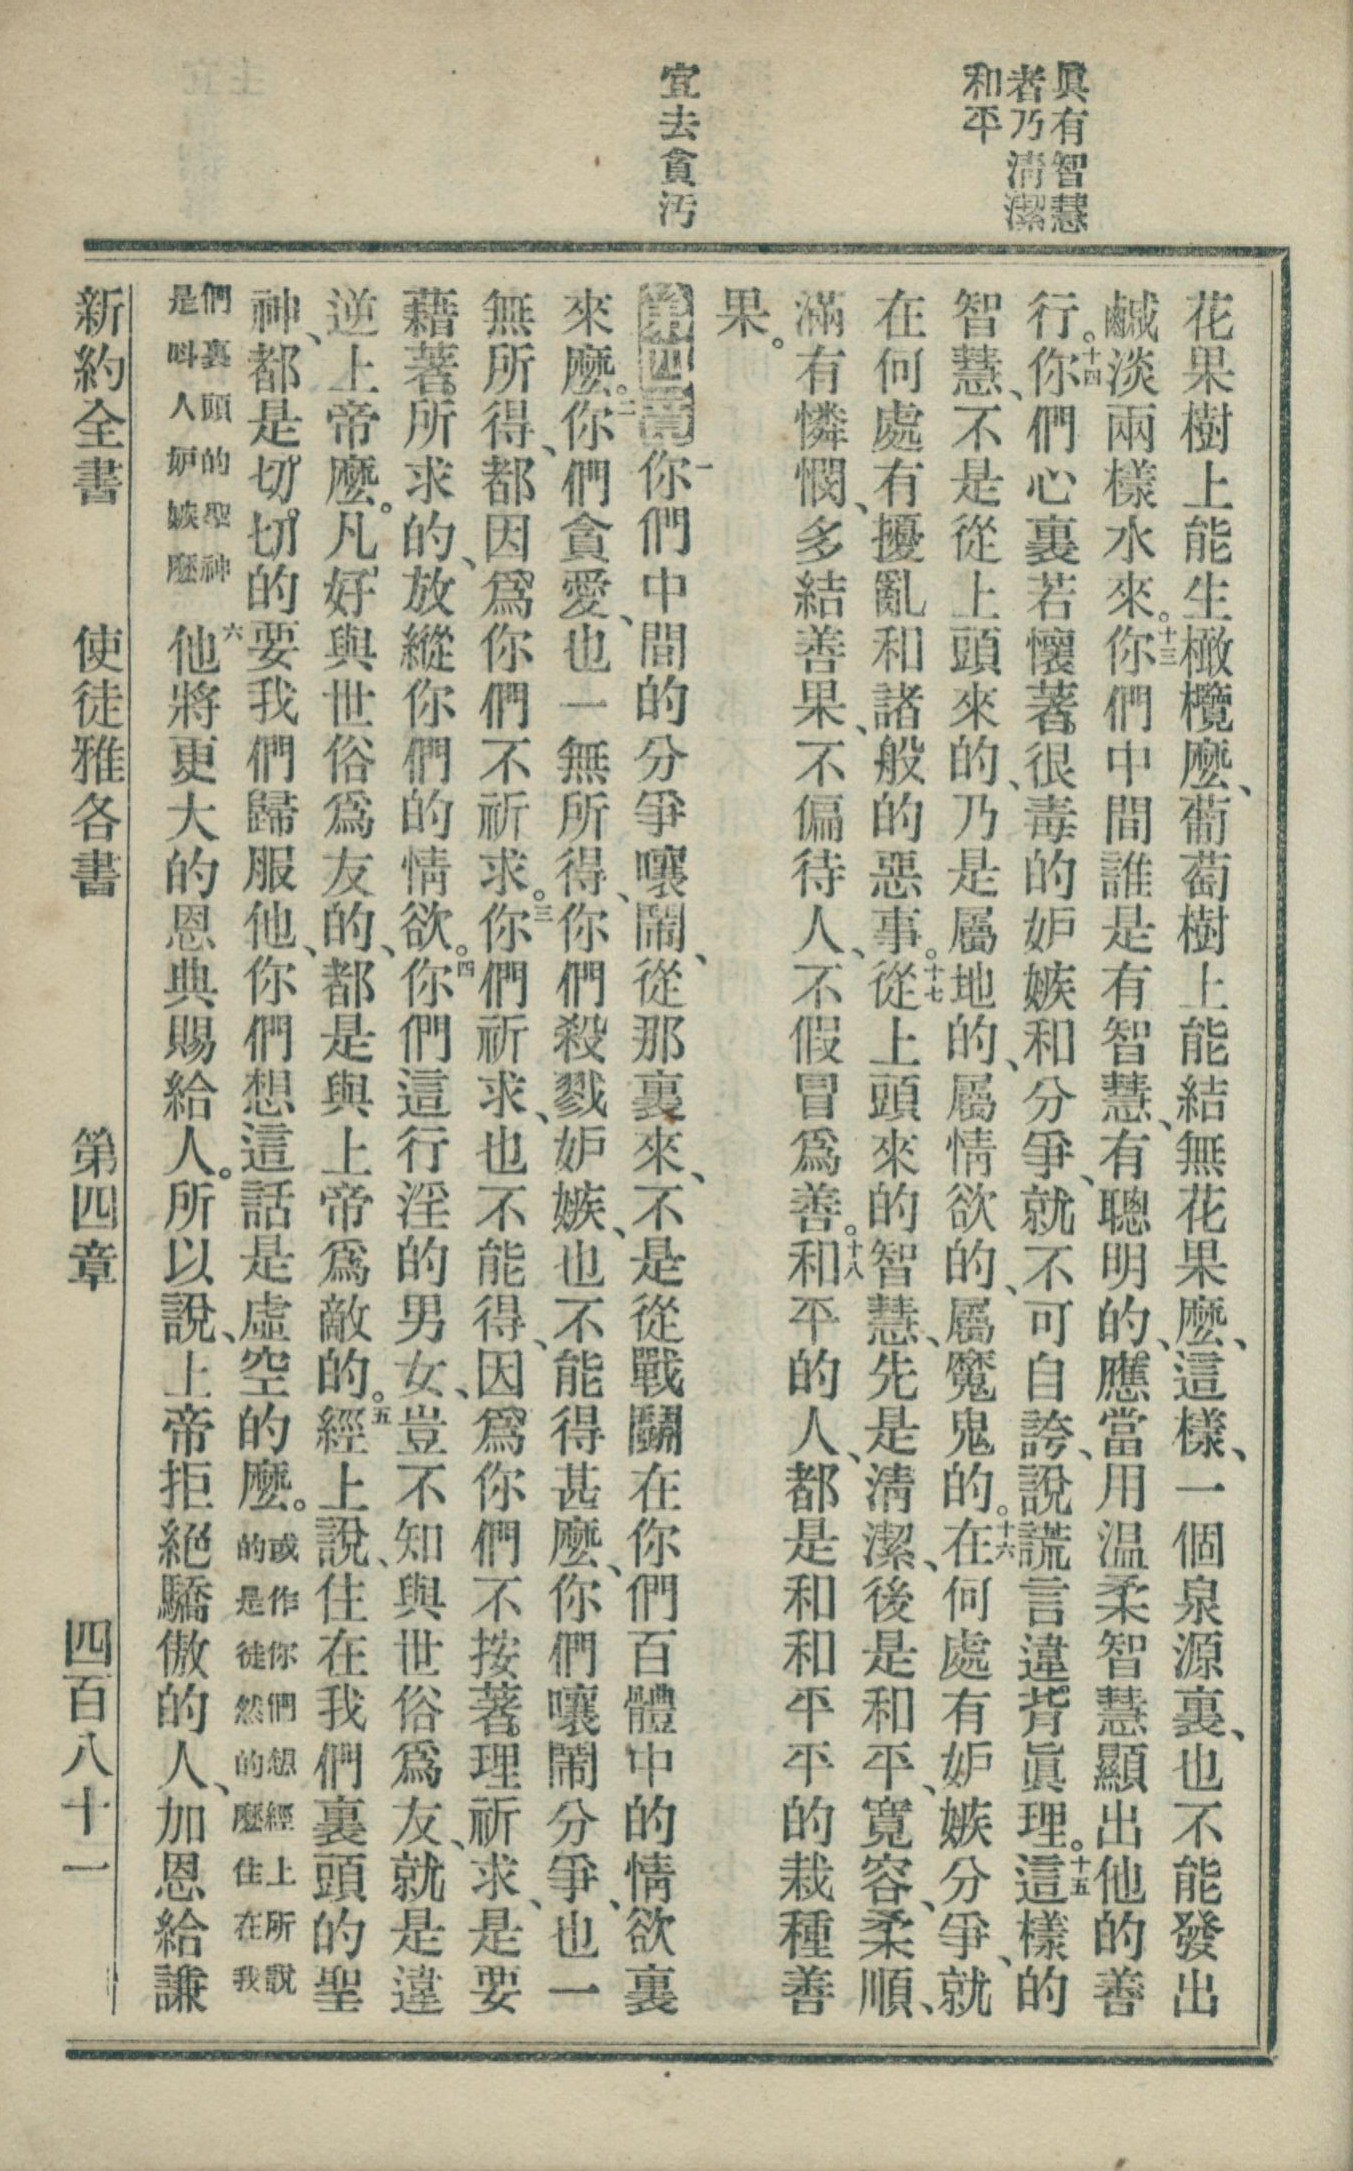 眞有智慧
者乃清潔
和平
宜去貪污
花果樹上能生橄欖麼、葡萄樹上能結無花果麼、這樣、一個泉源裏、也不能發出
鹹淡兩樣水來。十三你們中間誰是有智慧、有聰明的、應當用温柔智慧顯出他的善
行。十四你們心裏若懷著很毒的妒嫉和分爭、就不可自誇、說謊言違背眞理。十五這樣的
智慧、不是從上頭來的、乃是屬地的、屬情欲的、屬魔鬼的。十六在何處有妒嫉分爭、就
在何處有擾亂和諸般的惡事。十七從上頭來的智慧、先是清潔、後是和平、寬容、柔順、
滿有憐憫、多結善果、不偏待人、不假冒爲善。十八和平的人、都是和和平平的栽種善
果。
第四章一你們中間的分爭嚷鬧、從那裏來、不是從戰鬭在你們百體中的情欲裏
來麼。二你們貪愛、也一無所得、你們殺戮妒嫉、也不能得甚麼、你們嚷鬧分爭、也一
無所得、都因爲你們不祈求。三你們祈求、也不能得、因爲你們不按著理祈求、是要
藉著所求的、放縱你們的情欲。四你們這行淫的男女、豈不知與世俗爲友、就是違
逆上帝麼。凡好與世俗爲友的、都是與上帝爲敵的。五經上說、住在我們裏頭的聖
神、都是切切的要我們歸服他、你們想這話是虛空的麼。或作你們想經上所說的是徒然的麼住在我
們裏頭的聖神是呌人妒嫉麼六他將更大的恩典賜給人。所以說、上帝拒絕驕傲的人、加恩給謙
新約全書 使徒雅各書 第四章 四百八十一